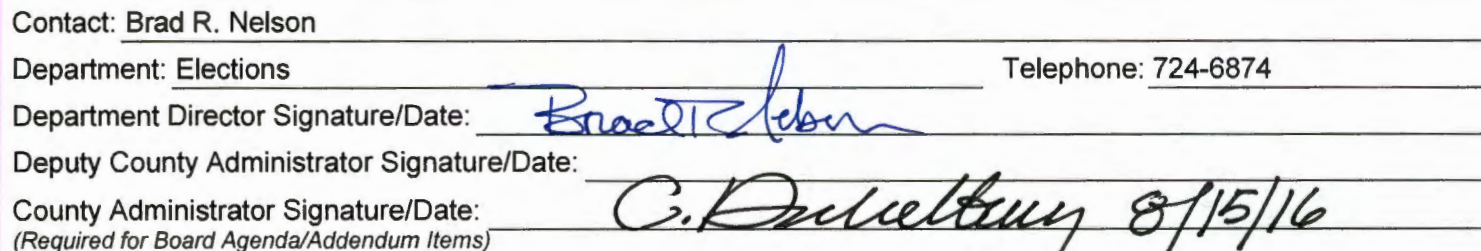 Contact: Brad R. Nelson
Department: Elections Telephone: 724-6874
Department Director Signature/Date: Brad R Nelson
Deputy County Administrator Signature/Date:
County Administrator Signature/Date: C. 8/15/16
(Required for Board Agenda/Addendum Items)